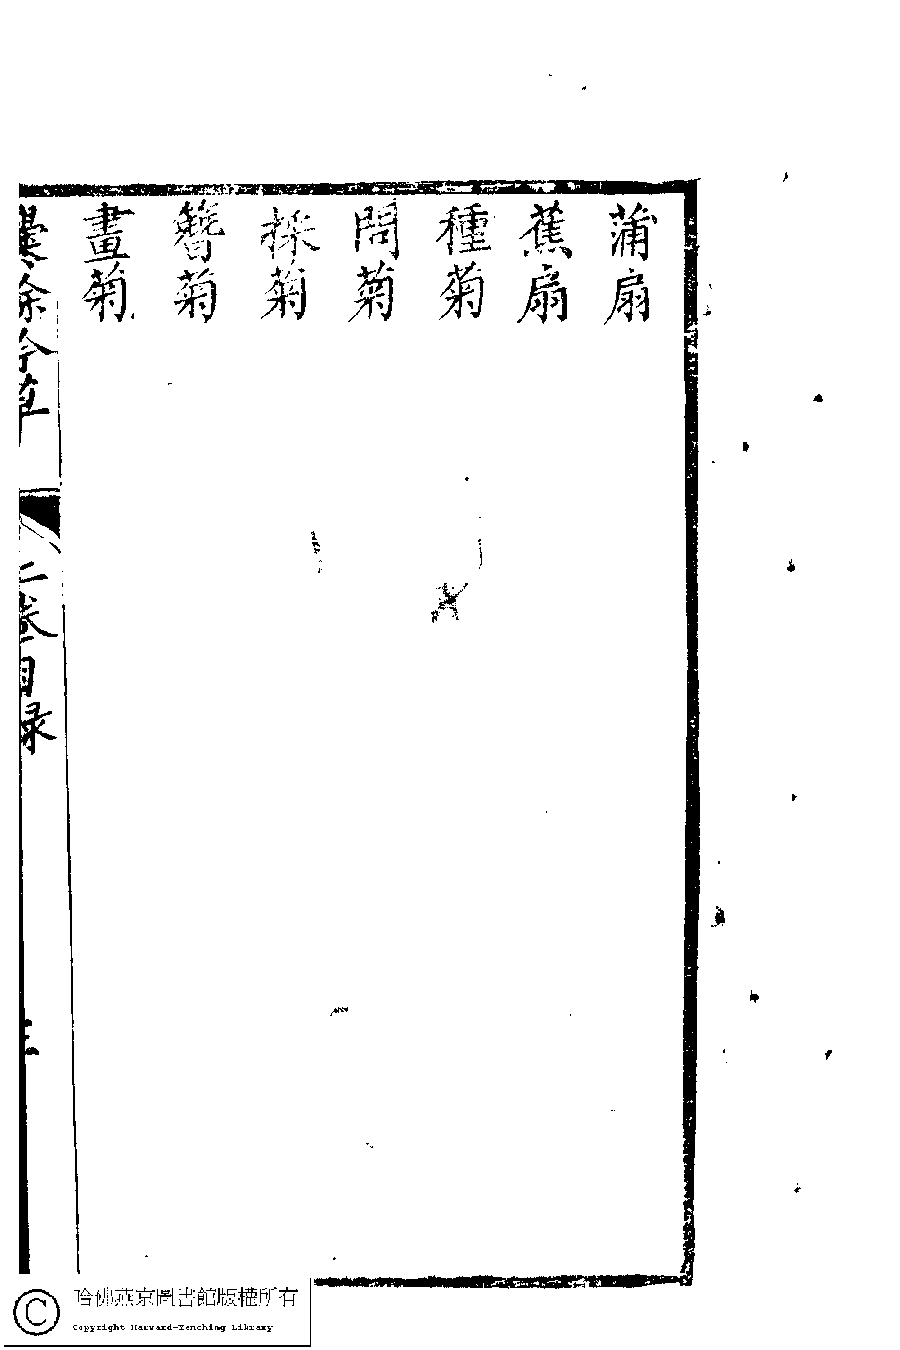 蒲扇
蕉扇
種菊
問菊
採菊
簪菊
畫菊
墨餘吟草
二卷目錄
三
哈佛燕京圖書館版權所有
Copyright Harvard-Yenching Library